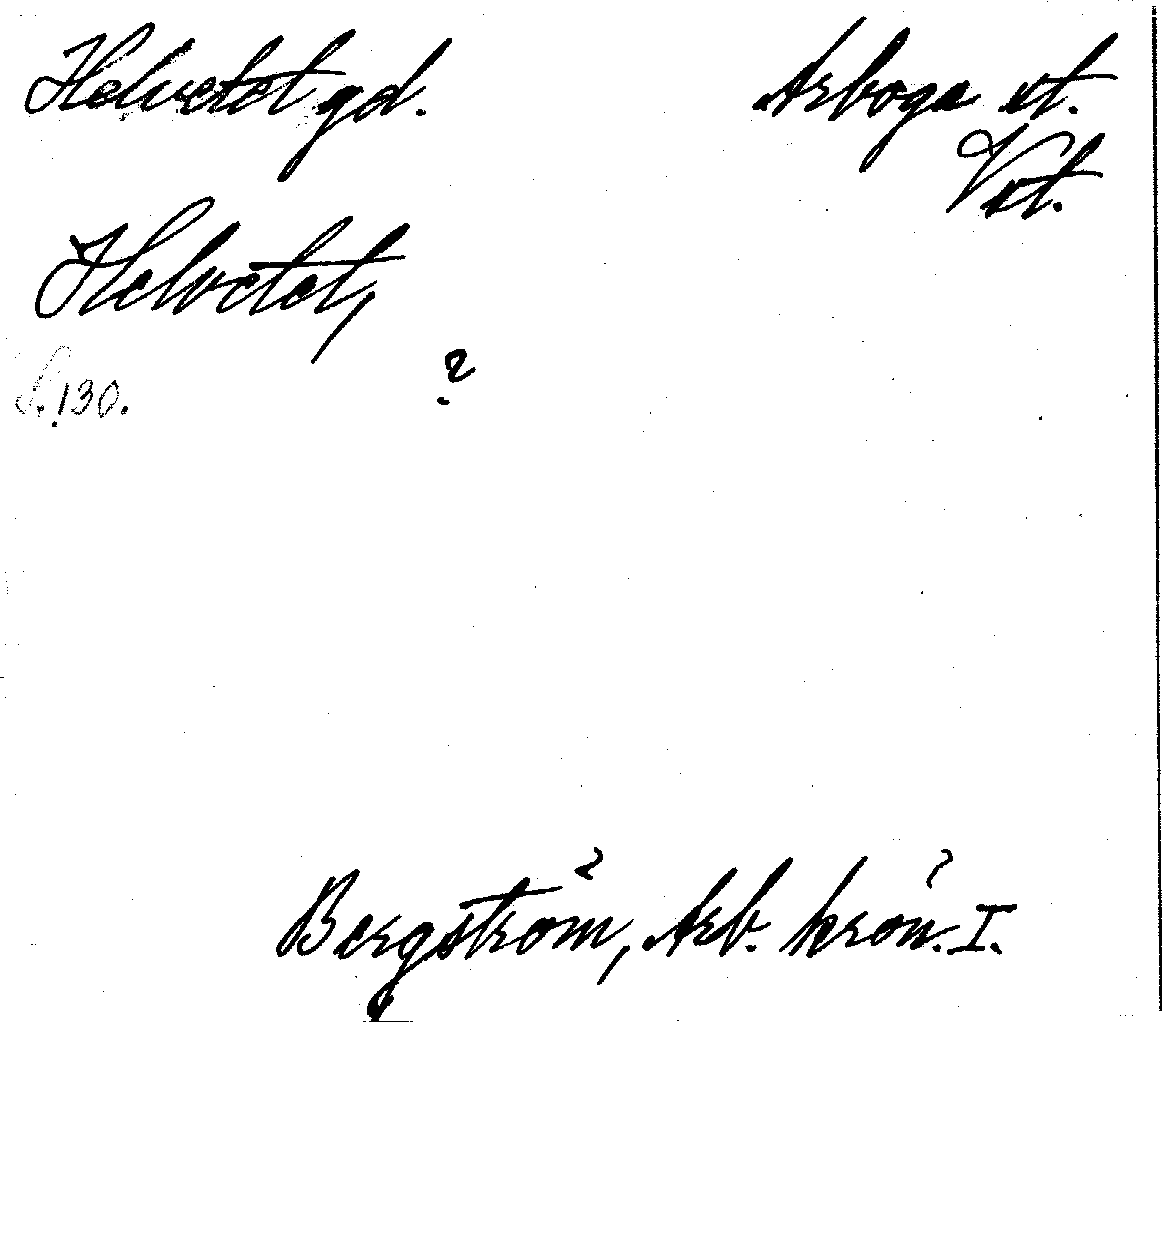 Helvetet gd. Arboga st.
Vst.
Helvetet,
S. 130. ?
Bergström, Arb. krön. I.